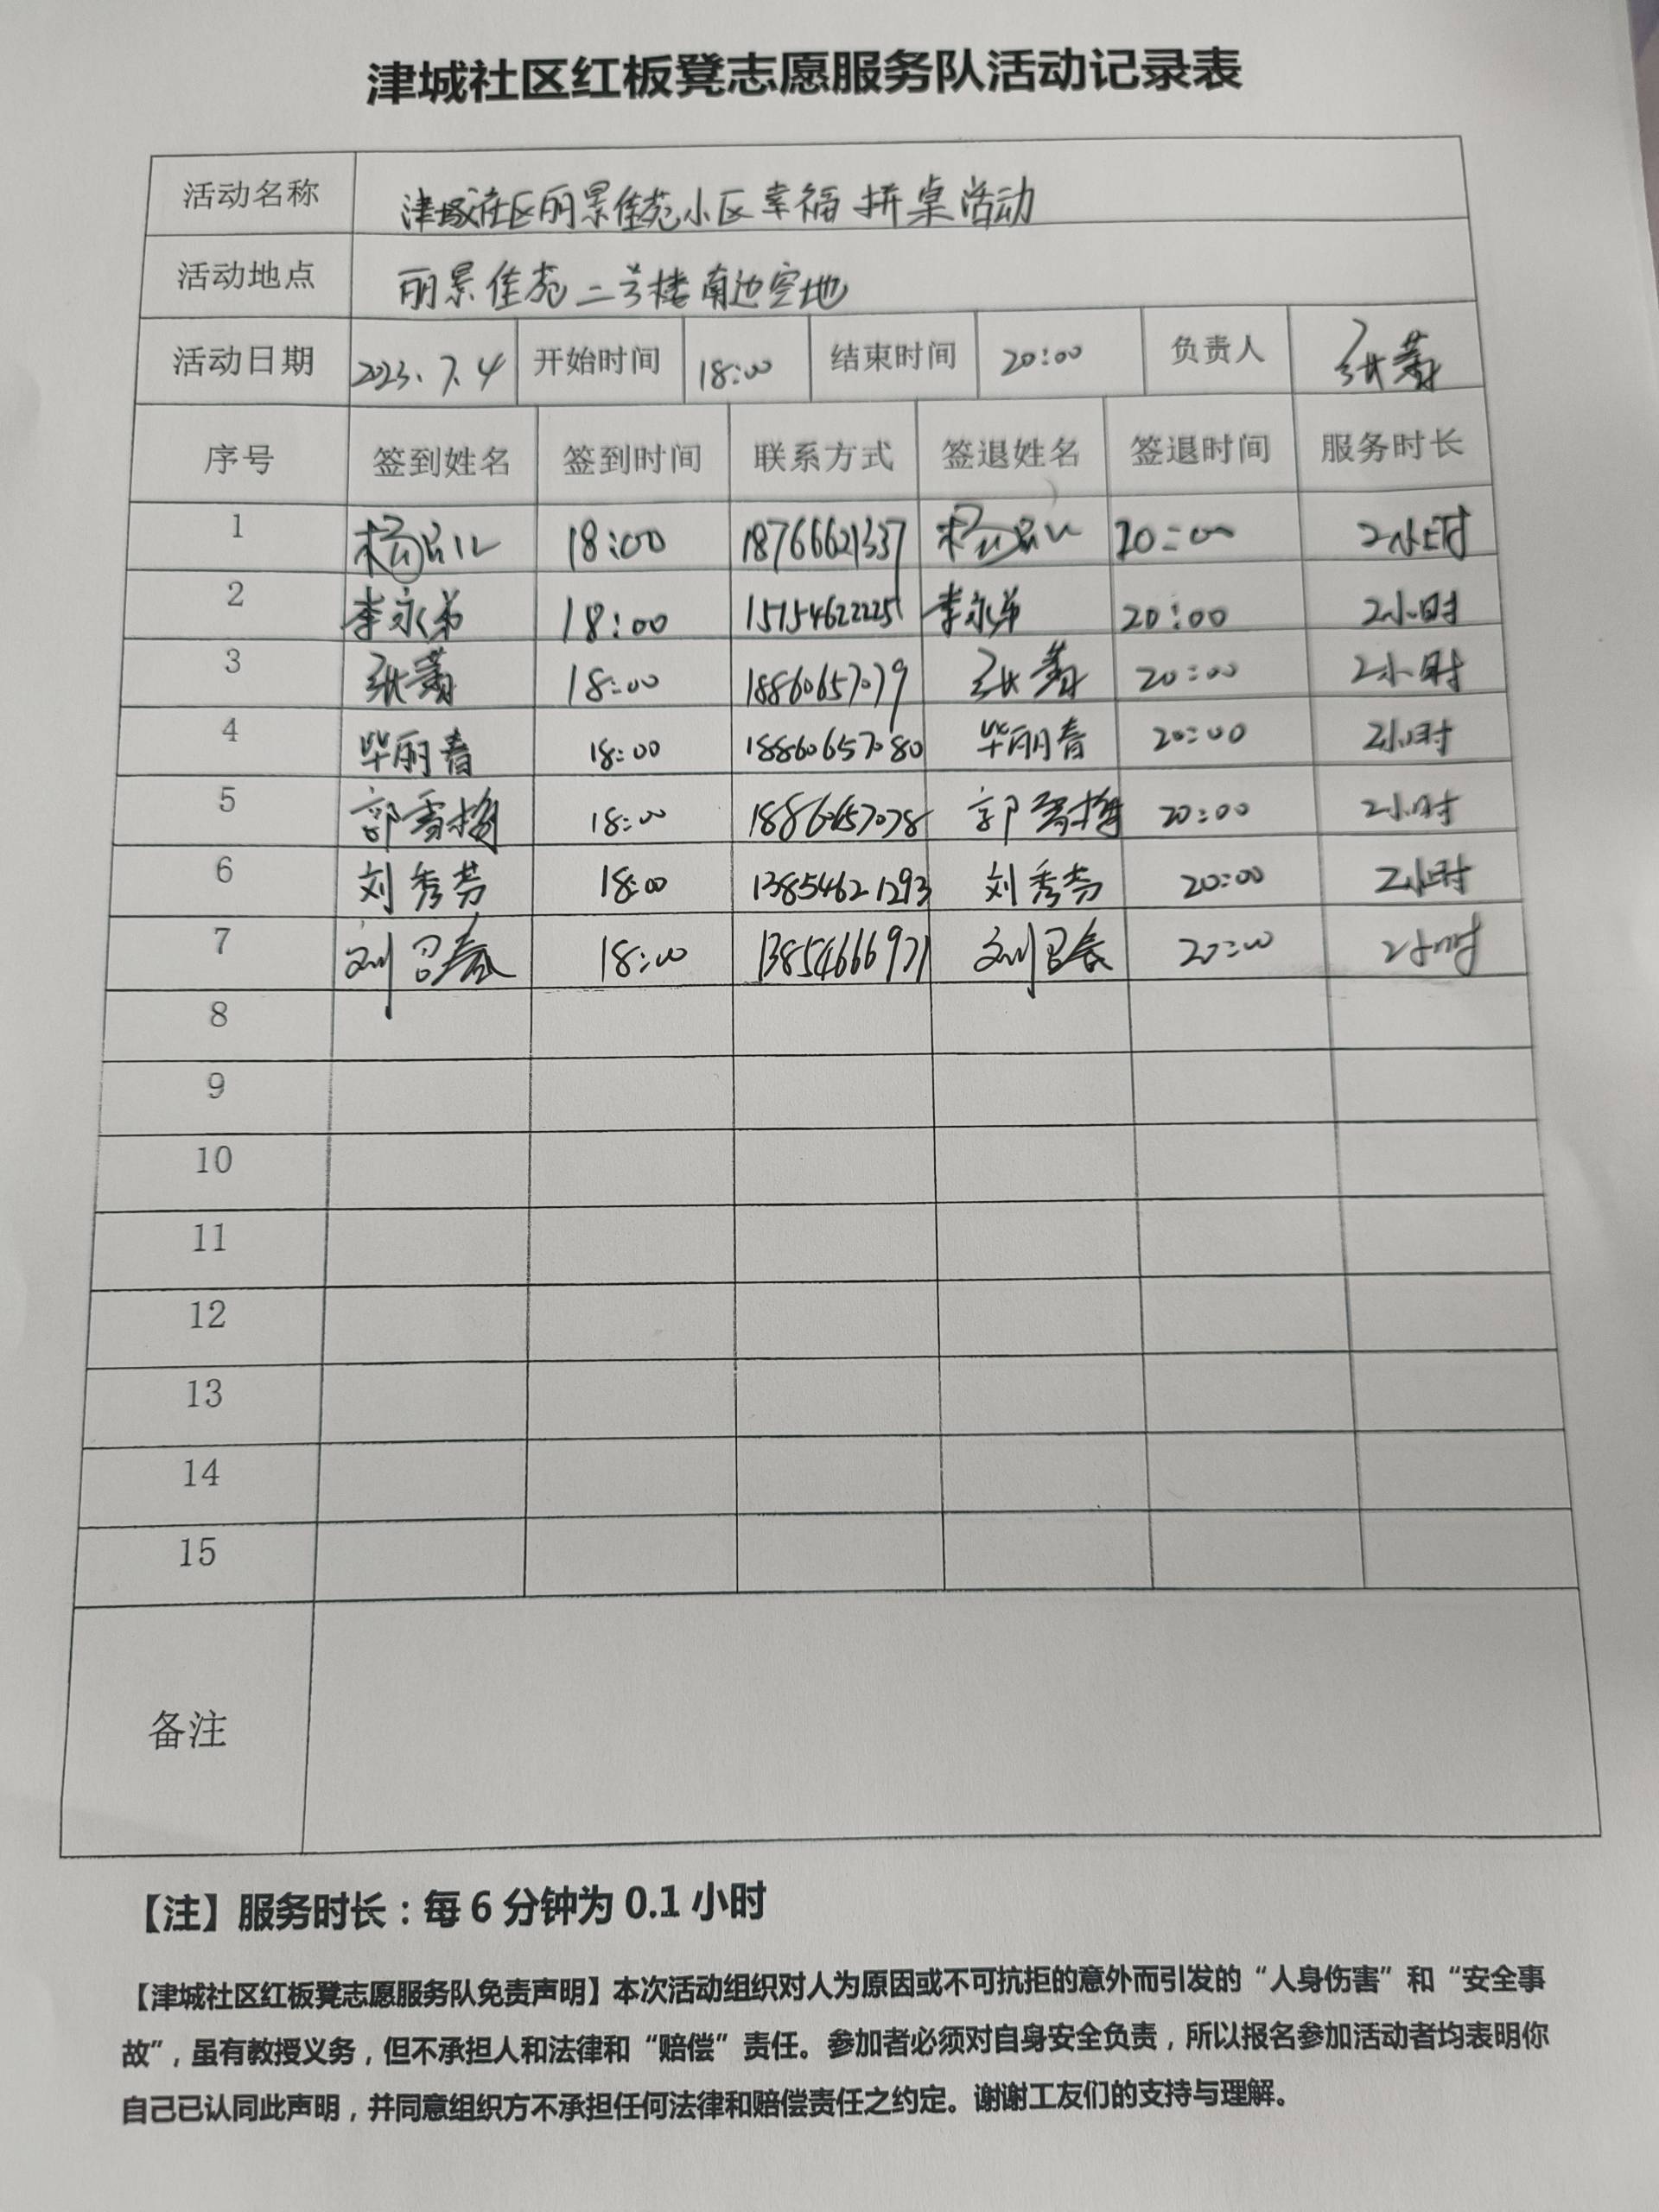 津城社区红板凳志愿服务队活动记录表
活动名称 津城社区丽景佳苑小区幸福拼桌活动
活动地点 丽景佳苑二号楼南边空地
活动日期 2023.7.4 开始时间 18:00 结束时间 20:00 负责人 张萧
序号 签到姓名 签到时间 联系方式 签退姓名 签退时间 服务时长
1 18:00 18766621337 20:00 2小时
2 李永弟 18:00 15154622225 李永弟 20:00 2小时
3 张萧 18:00 18860657079 张萧 20:00 2小时
4 毕丽春 18:00 18860657080 毕丽春 20:00 2小时
5 郭雪梅 18:00 18860657078 郭雪梅 20:00 2小时
6 刘秀芬 18:00 13854621293 刘秀芬 20:00 2小时
7 刘召春 18:00 13854666971 刘召春 20:00 2小时
8
9
10
11
12
13
14
15
备注
【注】服务时长：每6分钟为0.1小时
【津城社区红板凳志愿服务队免责声明】本次活动组织对人为原因或不可抗拒的意外而引发的“人身伤害”和“安全事
故”，虽有教授义务，但不承担人和法律和“赔偿”责任。参加者必须对自身安全负责，所以报名参加活动者均表明你
自己已认同此声明，并同意组织方不承担任何法律和赔偿责任之约定。谢谢工友们的支持与理解。